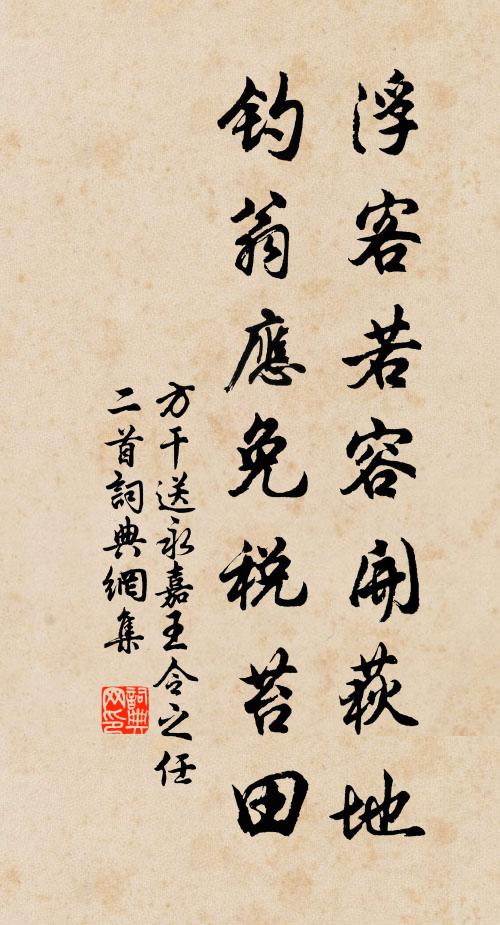 浮客若容開荻地
釣翁應免稅苔田
方干送永嘉王令之任
二首詞典網集
詞典
网印